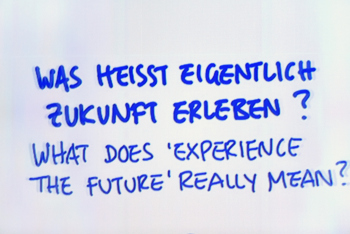 WAS HEISST EIGENTLICH
ZUKUNFT ERLEBEN ?
WHAT DOES 'EXPERIENCE
THE FUTURE' REALLY MEAN?